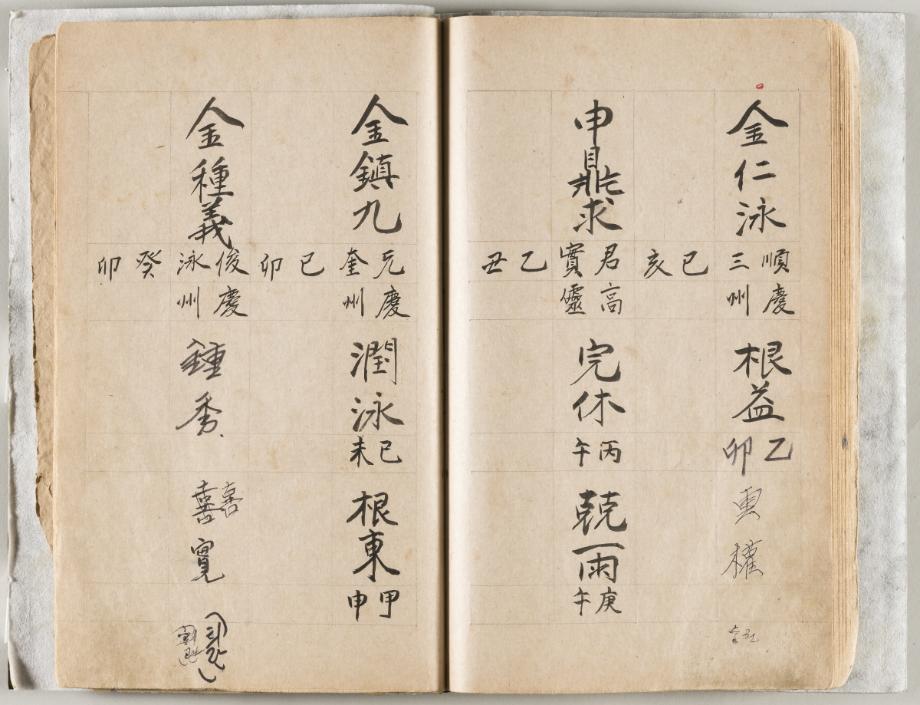 金仁泳
順三
慶州
己亥
根益
乙卯
重權
申鼎求
君實
高靈
乙丑
完休
丙午
兢雨
庚午
金鎭九
元奎
慶州
己卯
潤泳
己未
根東
甲申
金種義
俊泳
慶州
癸卯
鍾秀
寬